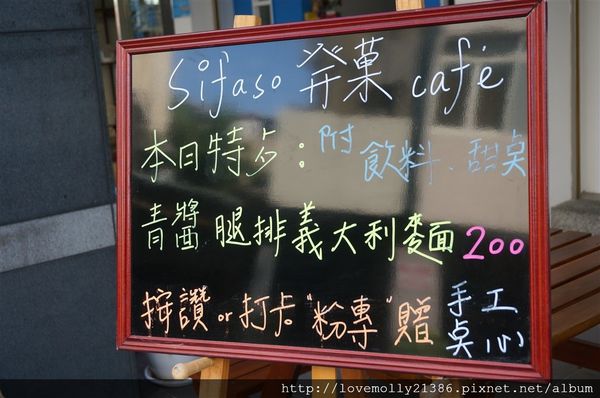 Sifaso 発菓 café
本日特夕：附飲料、甜桌
青醬腿排義大利麵 200
按讚 or 打卡 "粉專" 贈手工桌心
http://lovemolly21386.pixnet.net/album